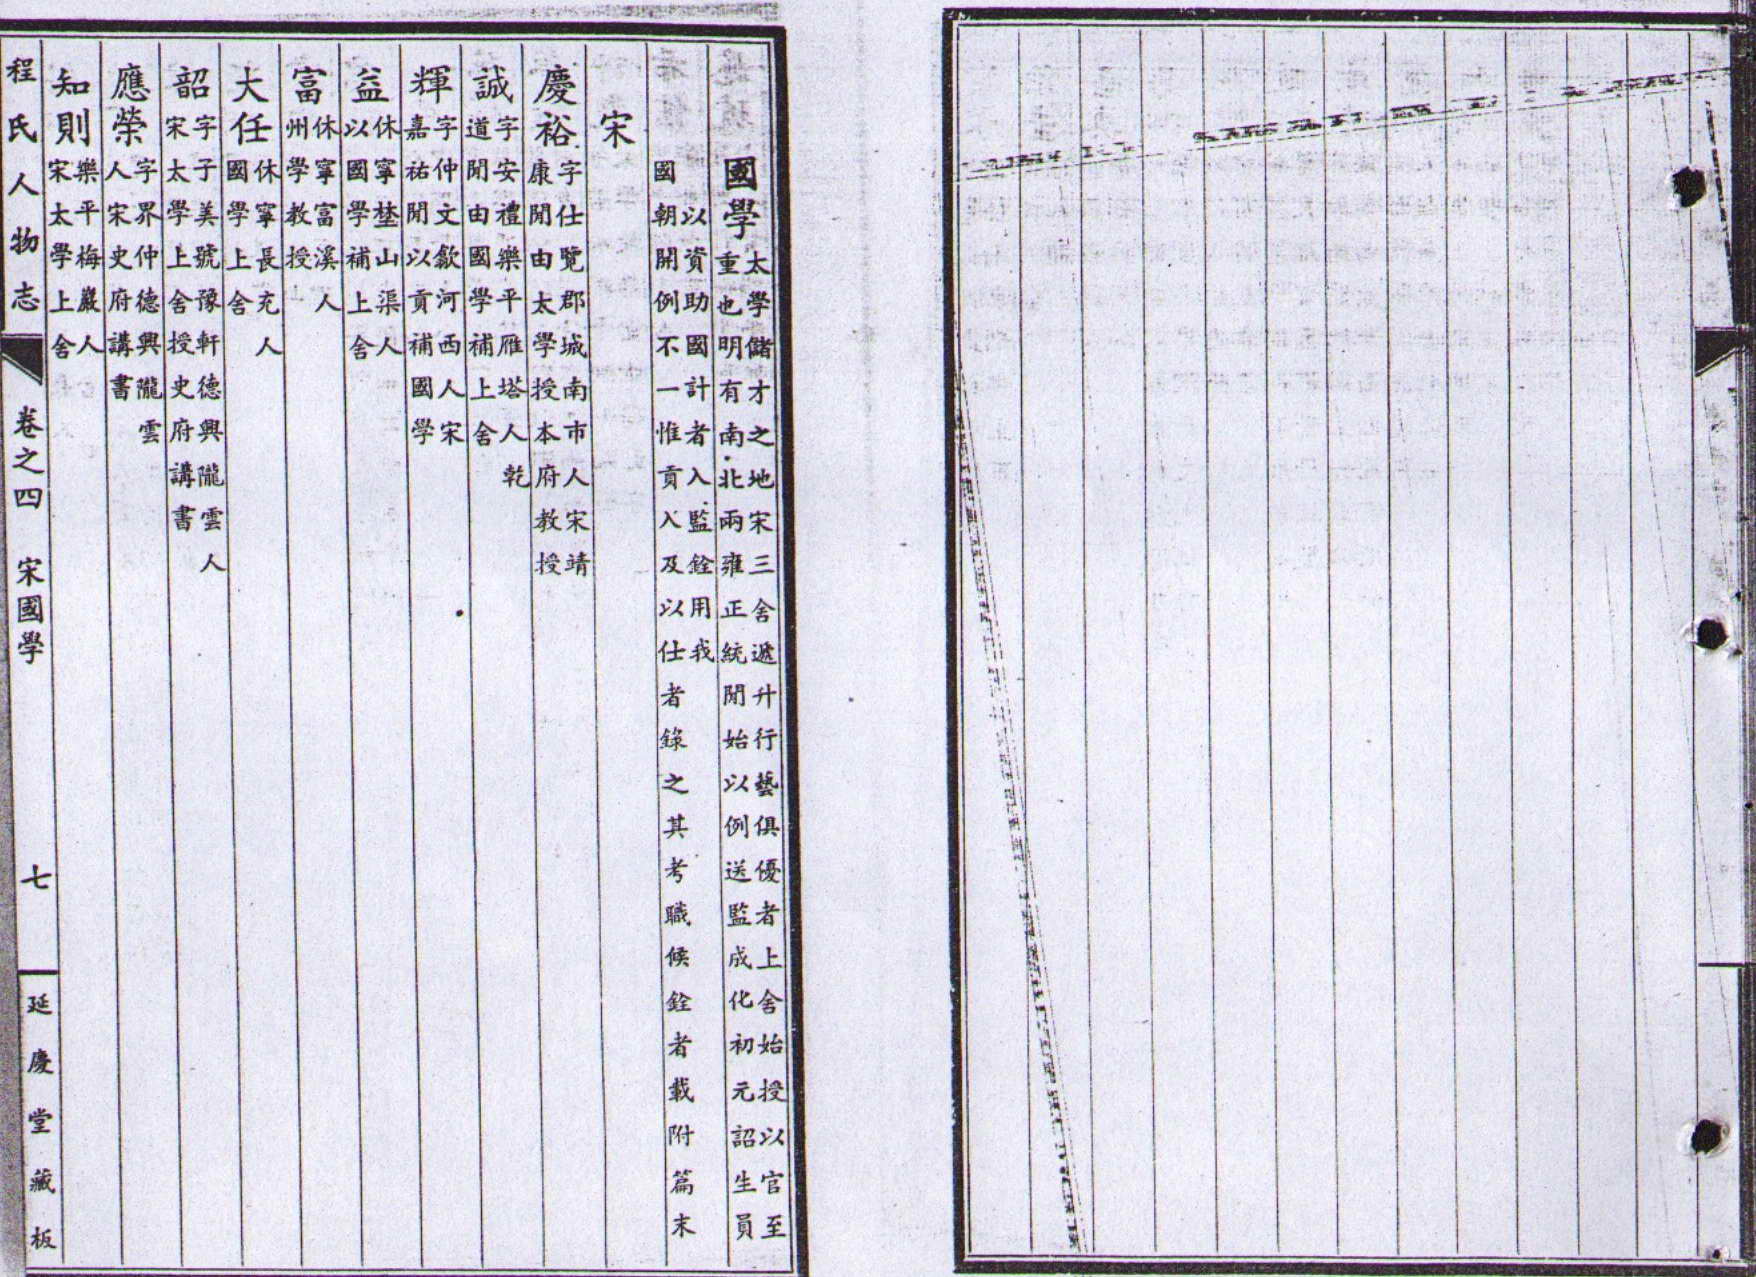 國學
太學儲才之地宋三舍遞升行藝俱優者上舍始授以官至
重也明有南北兩雍正統間始以例送監成化初元詔生員
以資助國計者入監銓用我
國朝開例不一惟貢入及以仕者錄之其考職候銓者載附篇末
宋
慶裕
字仕覽郡城南市人宋靖
康間由太學授本府教授
誠
字安禮樂平雁塔人乾
道間由國學補上舍
輝
字仲文歙河西人宋
嘉祐間以貢補國學
益
休寧埜山渠人
以國學補上舍
富
休寧富溪人
州學教授
大任
休寧長充人
國學上舍
韶
字子美號豫軒德興隴雲人
宋太學上舍授史府講書
應榮
字界仲德興隴雲
人宋史府講書
知則
樂平梅巖人
宋太學上舍
程氏人物志
卷之四 宋國學
七
延慶堂藏板